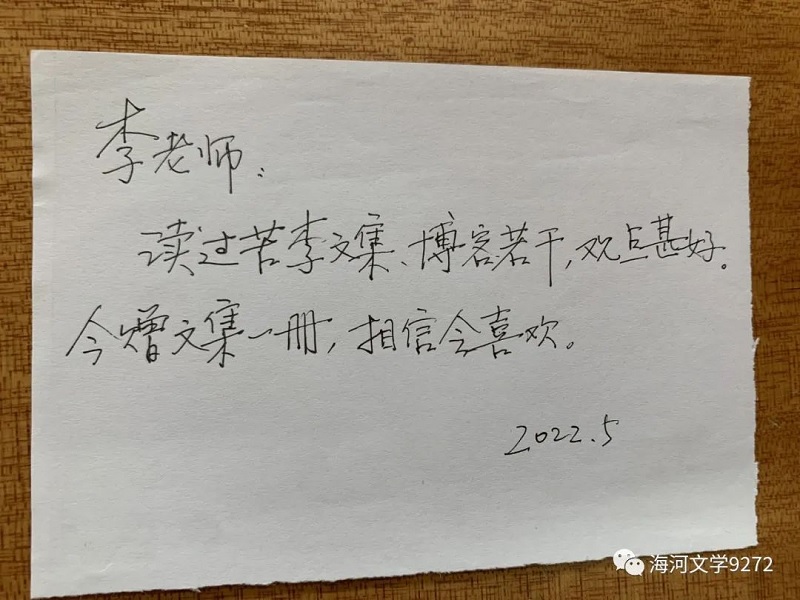 李老师：
读过苦李文集、博客若干，观点甚好。
今赠文集一册，相信会喜欢。
2022.5
海河文学9272